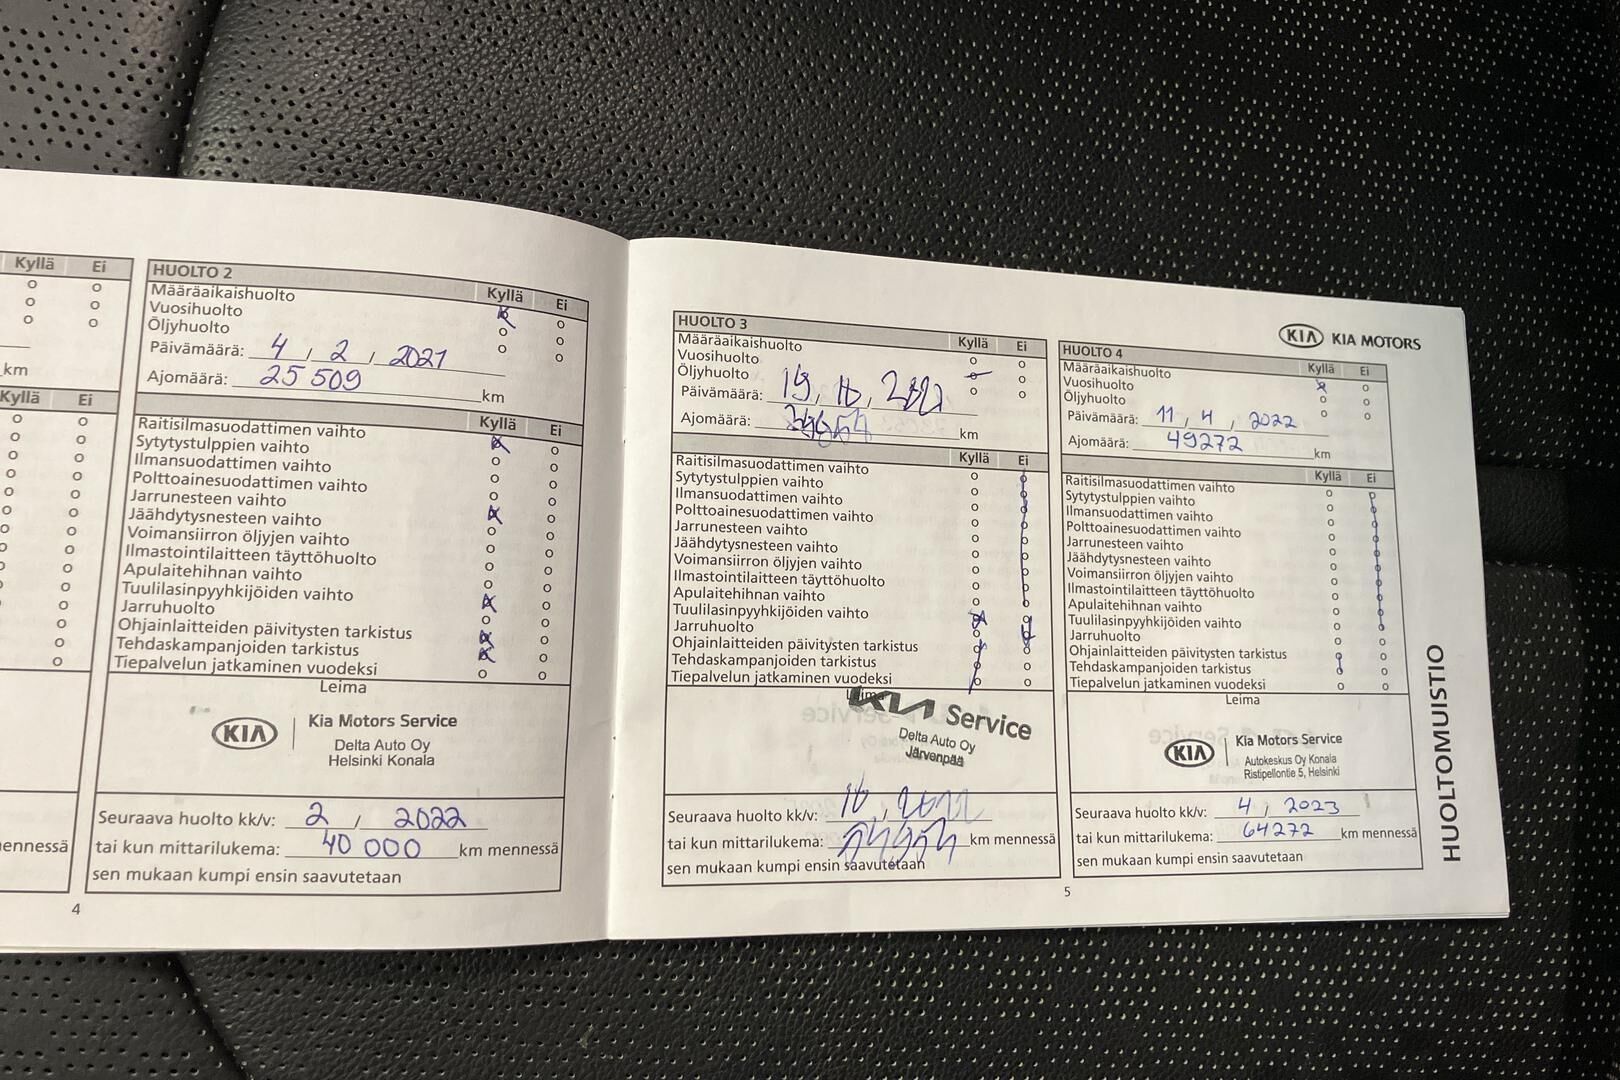 Kyllä Ei
km
Kyllä Ei
mennessä
4
HUOLTO 2
Kyllä Ei
Määräaikaishuolto
Vuosihuolto
Öljyhuolto
Päivämäärä: 4 / 2 / 2021
Ajomäärä: 25 509 km
Kyllä Ei
Raitisilmasuodattimen vaihto
Sytytystulppien vaihto
Ilmansuodattimen vaihto
Polttoainesuodattimen vaihto
Jarrunesteen vaihto
Jäähdytysnesteen vaihto
Voimansiirron öljyjen vaihto
Ilmastointilaitteen täyttöhuolto
Apulaitehihnan vaihto
Tuulilasinpyyhkijöiden vaihto
Jarruhuolto
Ohjainlaitteiden päivitysten tarkistus
Tehdaskampanjoiden tarkistus
Tiepalvelun jatkaminen vuodeksi
Leima
KIA Kia Motors Service
Delta Auto Oy
Helsinki Konala
Seuraava huolto kk/v: 2 / 2022
tai kun mittarilukema: 40 000 km mennessä
sen mukaan kumpi ensin saavutetaan
HUOLTO 3
Kyllä Ei
Määräaikaishuolto
Vuosihuolto
Öljyhuolto
Päivämäärä: 19,
Ajomäärä: km
Kyllä Ei
Raitisilmasuodattimen vaihto
Sytytystulppien vaihto
Ilmansuodattimen vaihto
Polttoainesuodattimen vaihto
Jarrunesteen vaihto
Jäähdytysnesteen vaihto
Voimansiirron öljyjen vaihto
Ilmastointilaitteen täyttöhuolto
Apulaitehihnan vaihto
Tuulilasinpyyhkijöiden vaihto
Jarruhuolto
Ohjainlaitteiden päivitysten tarkistus
Tehdaskampanjoiden tarkistus
Tiepalvelun jatkaminen vuodeksi
Leima
KIA Service
Delta Auto Oy
Järvenpää
Seuraava huolto kk/v:
tai kun mittarilukema: km mennessä
sen mukaan kumpi ensin saavutetaan
KIA KIA MOTORS
HUOLTO 4
Kyllä Ei
Määräaikaishuolto
Vuosihuolto
Öljyhuolto
Päivämäärä: 11 , 4 , 2022
Ajomäärä: 49272 km
Kyllä Ei
Raitisilmasuodattimen vaihto
Sytytystulppien vaihto
Ilmansuodattimen vaihto
Polttoainesuodattimen vaihto
Jarrunesteen vaihto
Jäähdytysnesteen vaihto
Voimansiirron öljyjen vaihto
Ilmastointilaitteen täyttöhuolto
Apulaitehihnan vaihto
Tuulilasinpyyhkijöiden vaihto
Jarruhuolto
Ohjainlaitteiden päivitysten tarkistus
Tehdaskampanjoiden tarkistus
Tiepalvelun jatkaminen vuodeksi
Leima
KIA Kia Motors Service
Autokeskus Oy Konala
Ristipellontie 5, Helsinki
Seuraava huolto kk/v: 4 / 2023
tai kun mittarilukema: 64272 km mennessä
sen mukaan kumpi ensin saavutetaan
5
HUOLTOMUISTIO